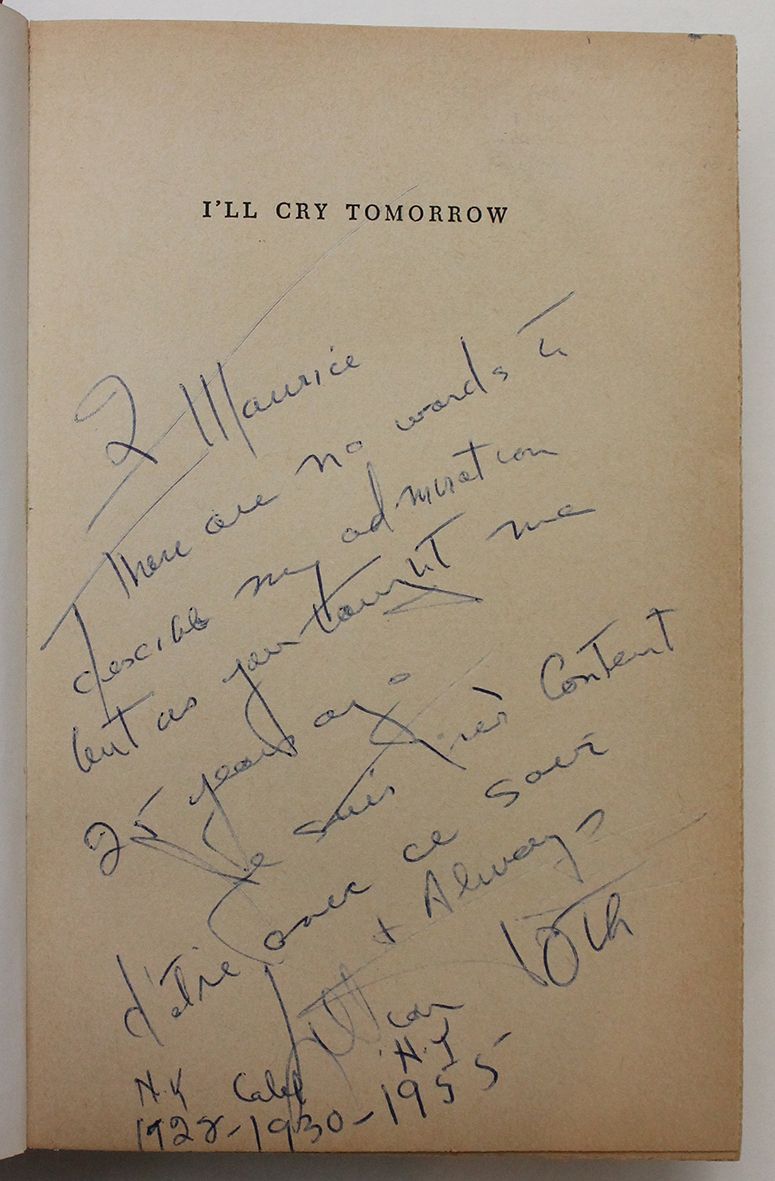 I'LL CRY TOMORROW
To Maurice
There are no words to
describe my admiration
but as you taught me
25 years ago
Je suis très Content
d'être avec ce soir
+ Always
Lillian Roth
N.Y Calif N.Y
1928-1930-1955